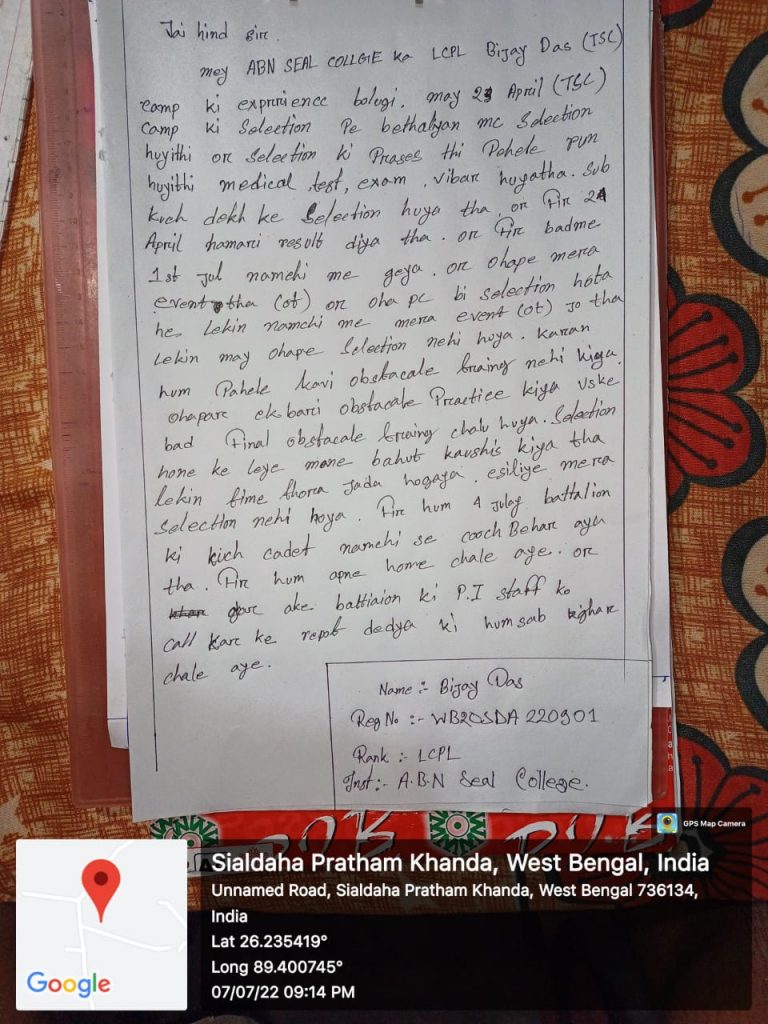 Jai hind sir.
mey ABN SEAL COLLGIE ka LCPL Bijay Das (TSC)
camp ki expririence bolugi. may 23 April (TSC)
camp ki Selection Pe bethaliyan me Selection
huyithi or Selection ki Prases thi Pahele run
huyithi medical test, exam, vibar huyatha. Sub
kuch dekh ke Selection huya tha. or Fir 24
April hamari result diya tha. or Fir badme
1st Jul namchi me geya. or ohape mera
event tha (ot) or oha pe bi selection hota
he. Lekin namchi me mera event (ot) Jo tha
Lekin may ohape Selection nehi huya. karan
hum Pahele kavi obstacale traing nehi kiya.
ohapare ekbari obstacale Practice kiya uske
bad Final obstacale traing chalu huya. Selection
hone ke leye mene bahut kaushis kiya tha
lekin time thora jada hogaya. esiliye mera
selection nehi hoya. Fir hum 4 July battalion
ki kich cadet namchi se cooch Behar aya
tha. Fir hum apne home chale aye. or
gar ake battiaion ki P.I staff ko
call kar ke repot dedya ki humsab ghar
chale aye.
Name :- Bijay Das
Reg No :- WB20SDA 220901
Rank :- LCPL
Inst:- A.B.N Seal College.
GPS Map Camera
Sialdaha Pratham Khanda, West Bengal, India
Unnamed Road, Sialdaha Pratham Khanda, West Bengal 736134,
India
Lat 26.235419°
Long 89.400745°
07/07/22 09:14 PM
Google